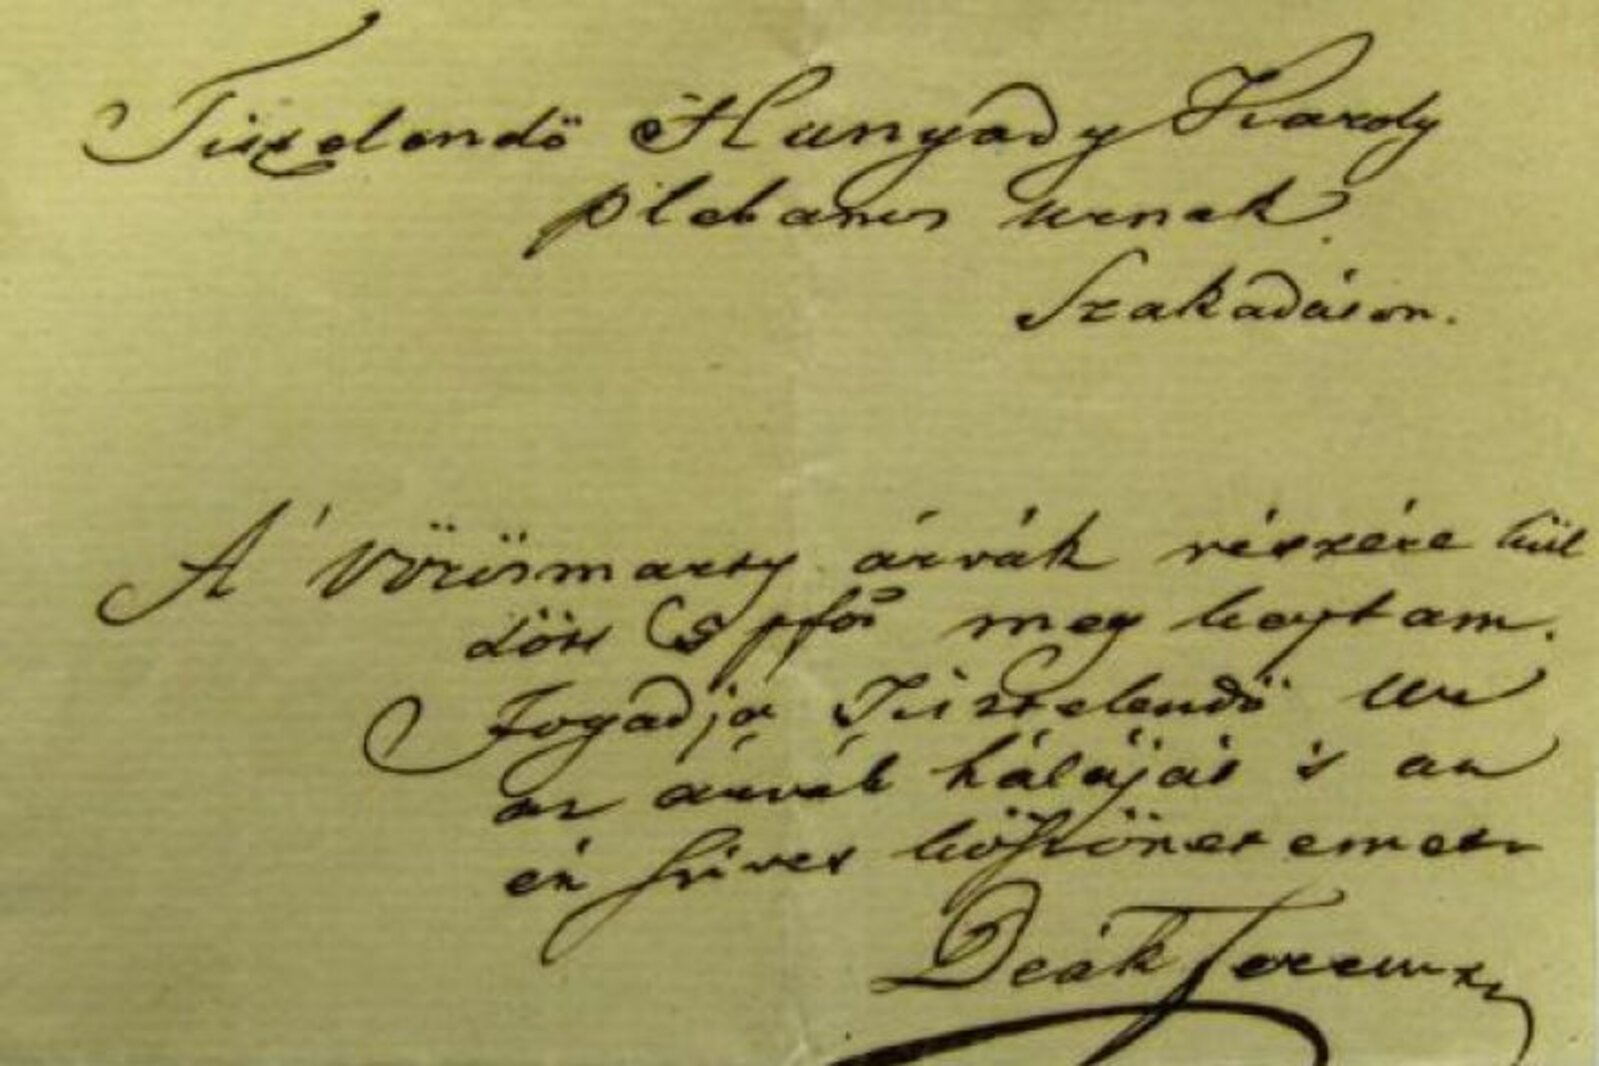 Tisztelendö Hunyady Károly
plebanus urnak
Szakadáson.
A' Vörösmarty árvák részére kül
dött 5 pfot meg kaptam.
Fogadja Tisztelendö Ur
az árvák háláját 's az
én szíves köszönetemet
Deák Ferencz